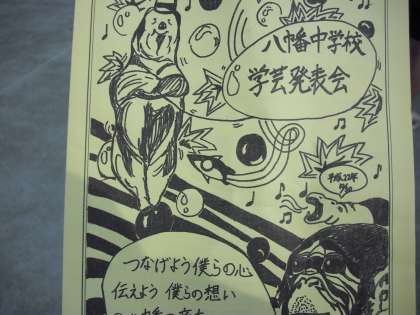 八幡中学校
学芸発表会
平成22年
つなげよう僕らの心
伝えよう 僕らの想い